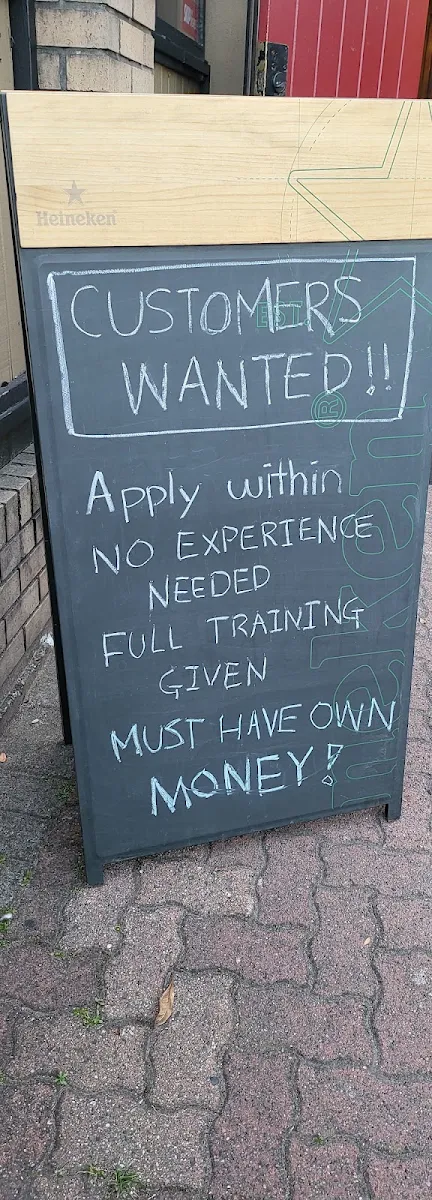 Heineken
EST.
CUSTOMERS
WANTED!!
®
Apply within
NO EXPERIENCE
NEEDED
FULL TRAINING
GIVEN
MUST HAVE OWN
MONEY!